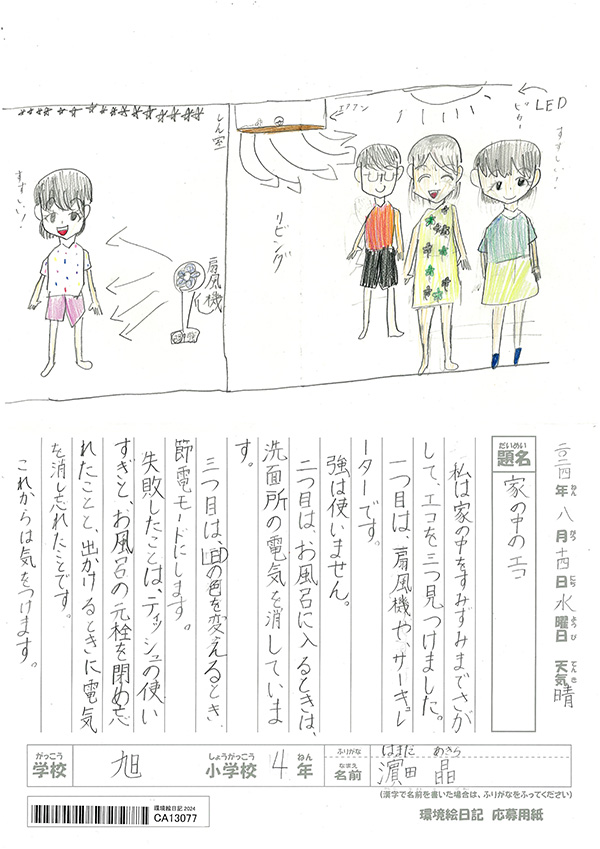 LED
ピカー
すずしい!
エアコン
リビング
しん室
扇風機
すずしい!
二〇二四年八月十四日水曜日 天気晴
ねん がつ にち ようび てんき
だいめい
題名
家の中のエコ
私は家の中をすみずみまでさが
して、エコを三つ見つけました。
一つ目は、扇風機や、サーキュレ
ーターです。
強は使いません。
二つ目は、お風呂に入るときは、
洗面所の電気を消していま
す。
三つ目は、LEDの色を変えるとき、
節電モードにします。
失敗したことは、ティッシュの使い
すぎと、お風呂の元栓を閉め忘
れたことと、出かけるときに電気
を消し忘れたことです。
これからは気をつけます。
がっこう しょうがっこう ねん
学校 旭 小学校 4年
ふりがな はまだ あきら
なまえ
名前 濵田 晶
(漢字で名前を書いた場合は、ふりがなをふってください)
環境絵日記 応募用紙
環境絵日記 2024
CA13077